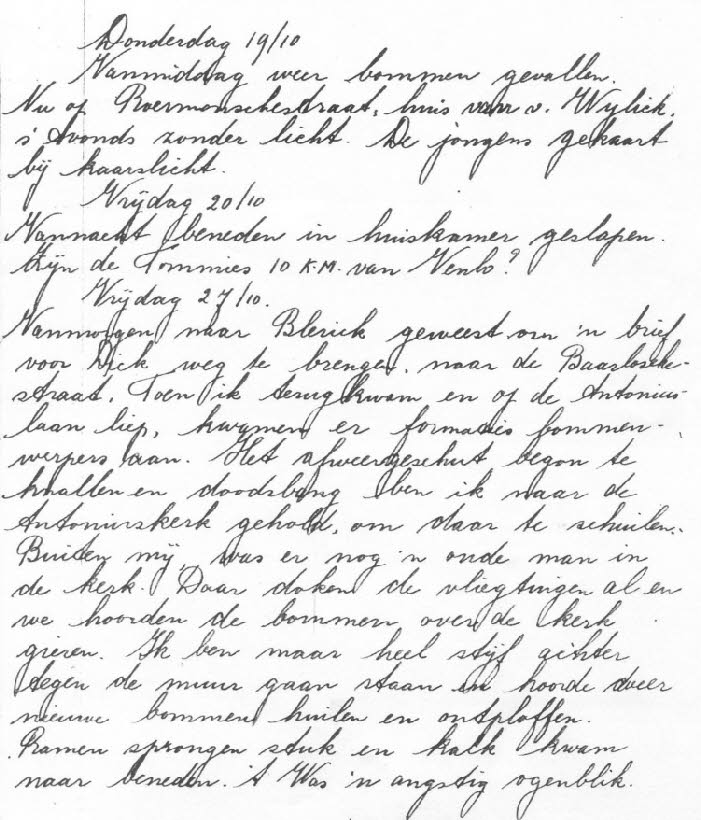 Donderdag 19/10
Vanmiddag weer bommen gevallen.
Nu op Roermonschestraat, huis van v. Wylick.
s' Avonds zonder licht. De jongens gekaart
bij kaarslicht.
Vrijdag 20/10
Vannacht beneden in huiskamer geslapen.
Zijn de Tommies 10 K.M. van Venlo?
Vrijdag 27/10.
Vanmorgen naar Blerick geweest om 'n brief
voor Dick weg te brengen, naar de Baaslosche-
straat. Toen ik terugkwam en op de Antonius-
laan liep, kwamen er formaties bommen-
werpers aan. Het afweergeschut begon te
knallen en doodsbang ben ik naar de
Antoniuskerk gehold, om daar te schuilen.
Buiten mij was er nog 'n oude man in
de kerk. Daar doken de vliegtuigen al en
we hoorden de bommen over de kerk
gieren. Ik ben maar heel stijf achter
tegen de muur gaan staan en hoorde weer
nieuwe bommen huilen en ontploffen.
Ramen sprongen stuk en kalk kwam
naar beneden. 't Was 'n angstig ogenblik.